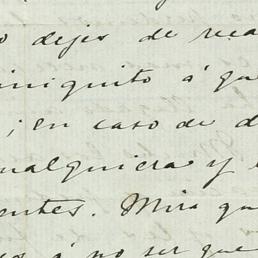 o dejes de rea
iniquito á qu
; en caso de d
ualquiera y e
entes. Mira qu
os á no ser que